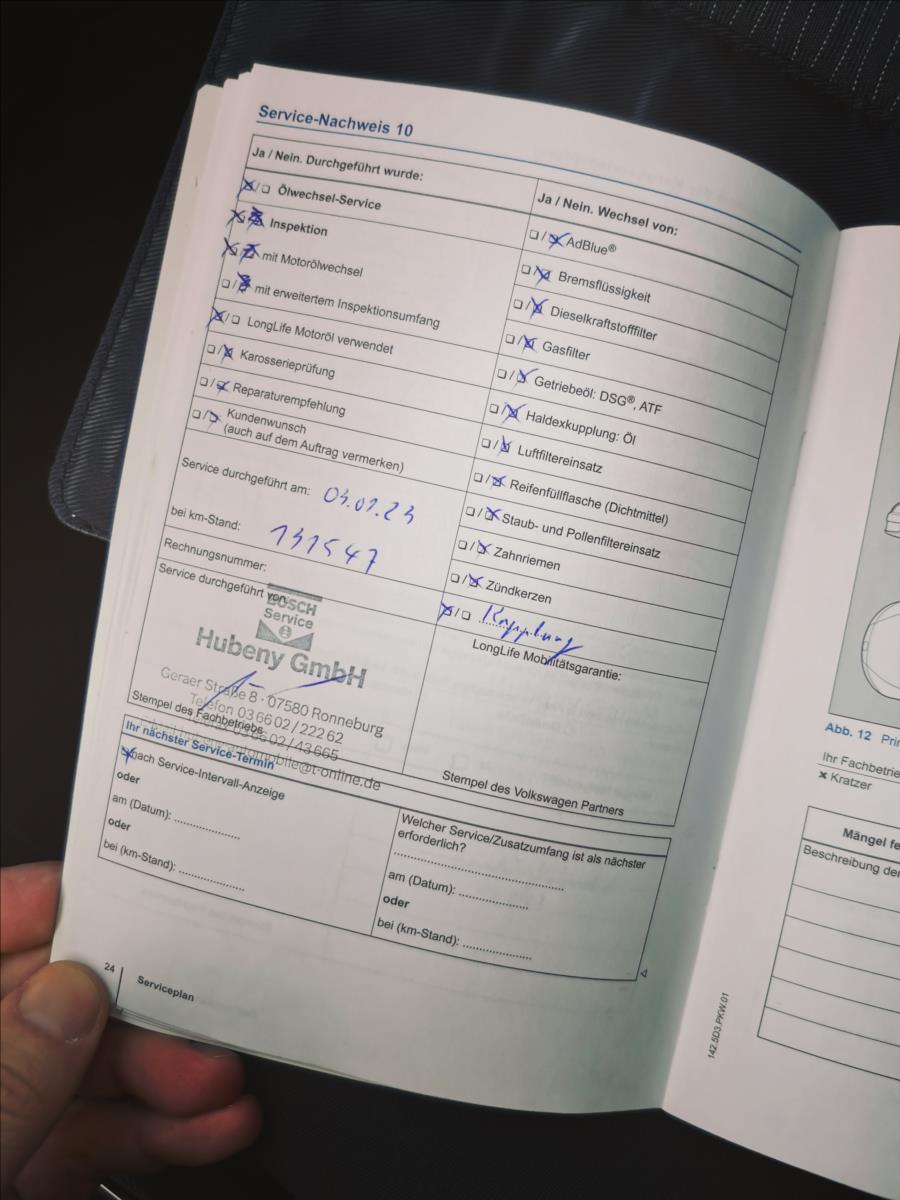 Service-Nachweis 10
Ja / Nein. Durchgeführt wurde:
☒/☐ Ölwechsel-Service
☒/☒ Inspektion
☒/☒ mit Motorölwechsel
☐/☒ mit erweitertem Inspektionsumfang
☒/☐ LongLife Motoröl verwendet
☐/☒ Karosserieprüfung
☐/☒ Reparaturempfehlung
☐/☒ Kundenwunsch
(auch auf dem Auftrag vermerken)
Service durchgeführt am: 03.01.23
bei km-Stand: 131547
Rechnungsnummer:
Service durchgeführt von:
BOSCH
Service
Hubeny GmbH
Geraer Straße 8 · 07580 Ronneburg
Telefon 03 66 02 / 222 62
Telefax 03 66 02 / 43 665
automobile@t-online.de
Stempel des Fachbetriebs
Ja / Nein. Wechsel von:
☐/☒ AdBlue®
☐/☒ Bremsflüssigkeit
☐/☒ Dieselkraftstofffilter
☐/☒ Gasfilter
☐/☒ Getriebeöl: DSG®, ATF
☐/☒ Haldexkupplung: Öl
☐/☒ Luftfiltereinsatz
☐/☒ Reifenfüllflasche (Dichtmittel)
☐/☒ Staub- und Pollenfiltereinsatz
☐/☒ Zahnriemen
☐/☒ Zündkerzen
☒/☐ Kupplung
LongLife Mobilitätsgarantie:
Stempel des Volkswagen Partners
Ihr nächster Service-Termin
☒ nach Service-Intervall-Anzeige
oder
am (Datum): ....................
oder
bei (km-Stand): ....................
Welcher Service/Zusatzumfang ist als nächster
erforderlich?
..................................................
am (Datum): ....................
oder
bei (km-Stand): ....................
24
Serviceplan
142.5D3.PKW.01
Abb. 12
Ihr Fachbetrie
× Kratzer
Mängel fe
Beschreibung der